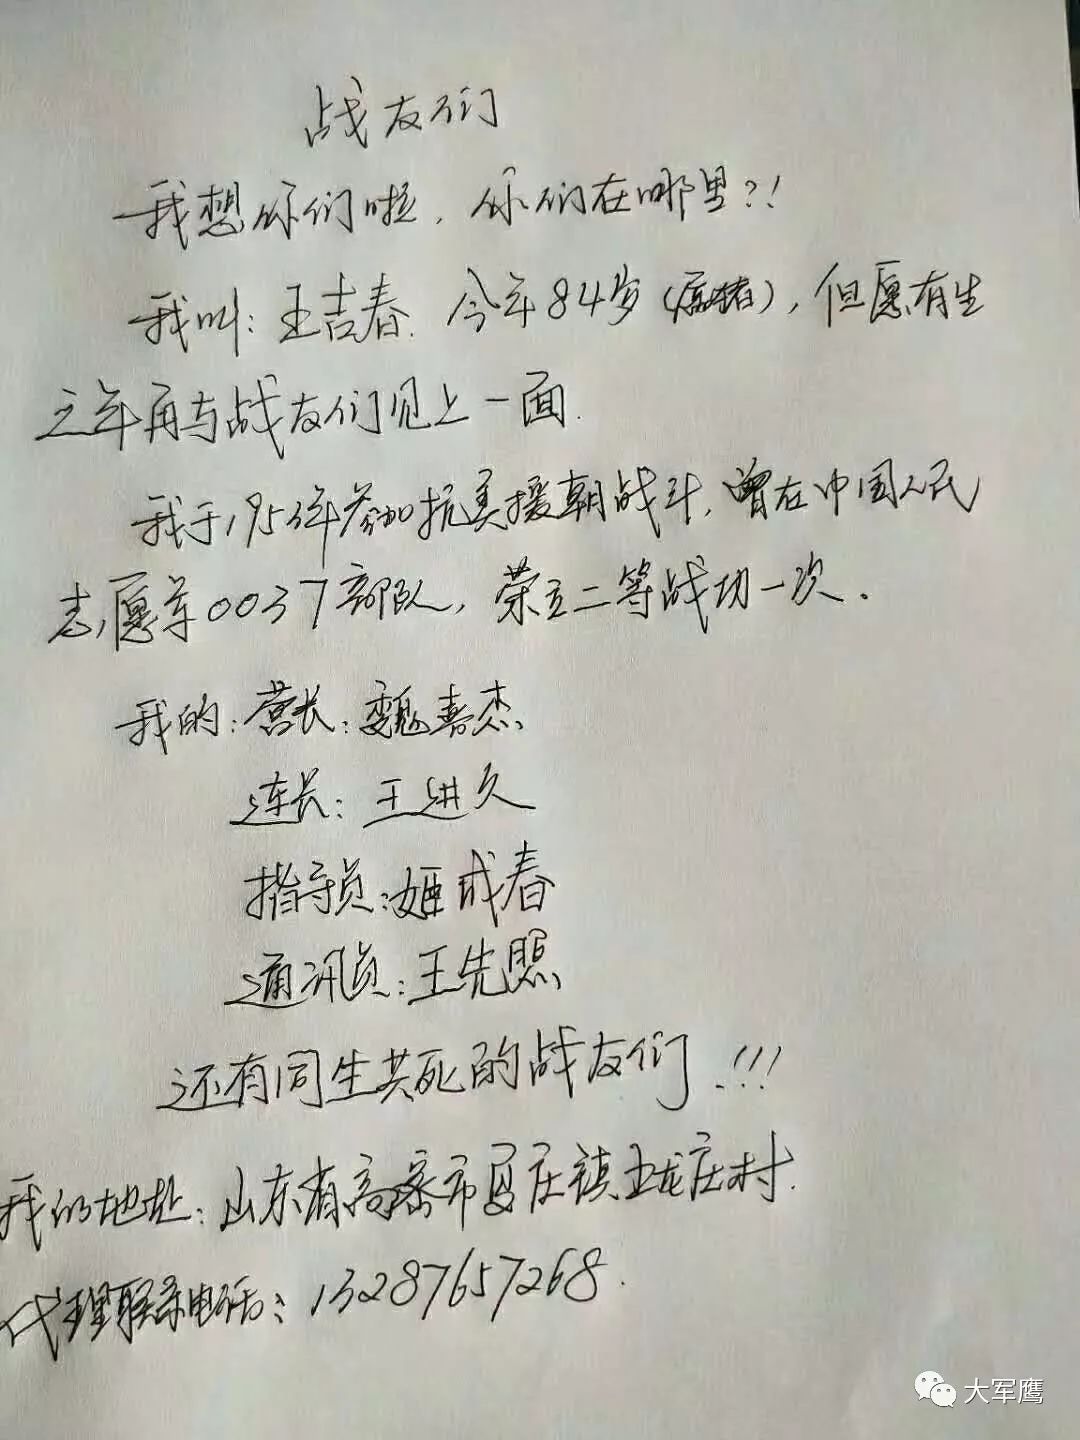 战友们
我想你们啦，你们在哪里?!
我叫：王吉春. 今年84岁（属猪），但愿有生
之年再与战友们见上一面.
我于1953年参加抗美援朝战斗，曾在中国人民
志愿军0037部队，荣立二等战功一次.
我的：营长：魏喜杰
连长：王进久
指导员：姬成春
通讯员：王先照
还有同生共死的战友们!!!
我的地址：山东省高密市夏庄镇龙庄村.
代理联系电话：13287657268.
大军鹰